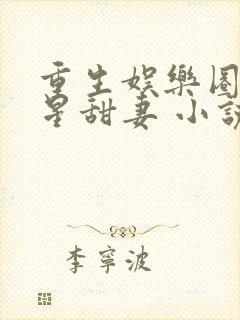 重生娛樂圈
星甜妻 小說
李寧波